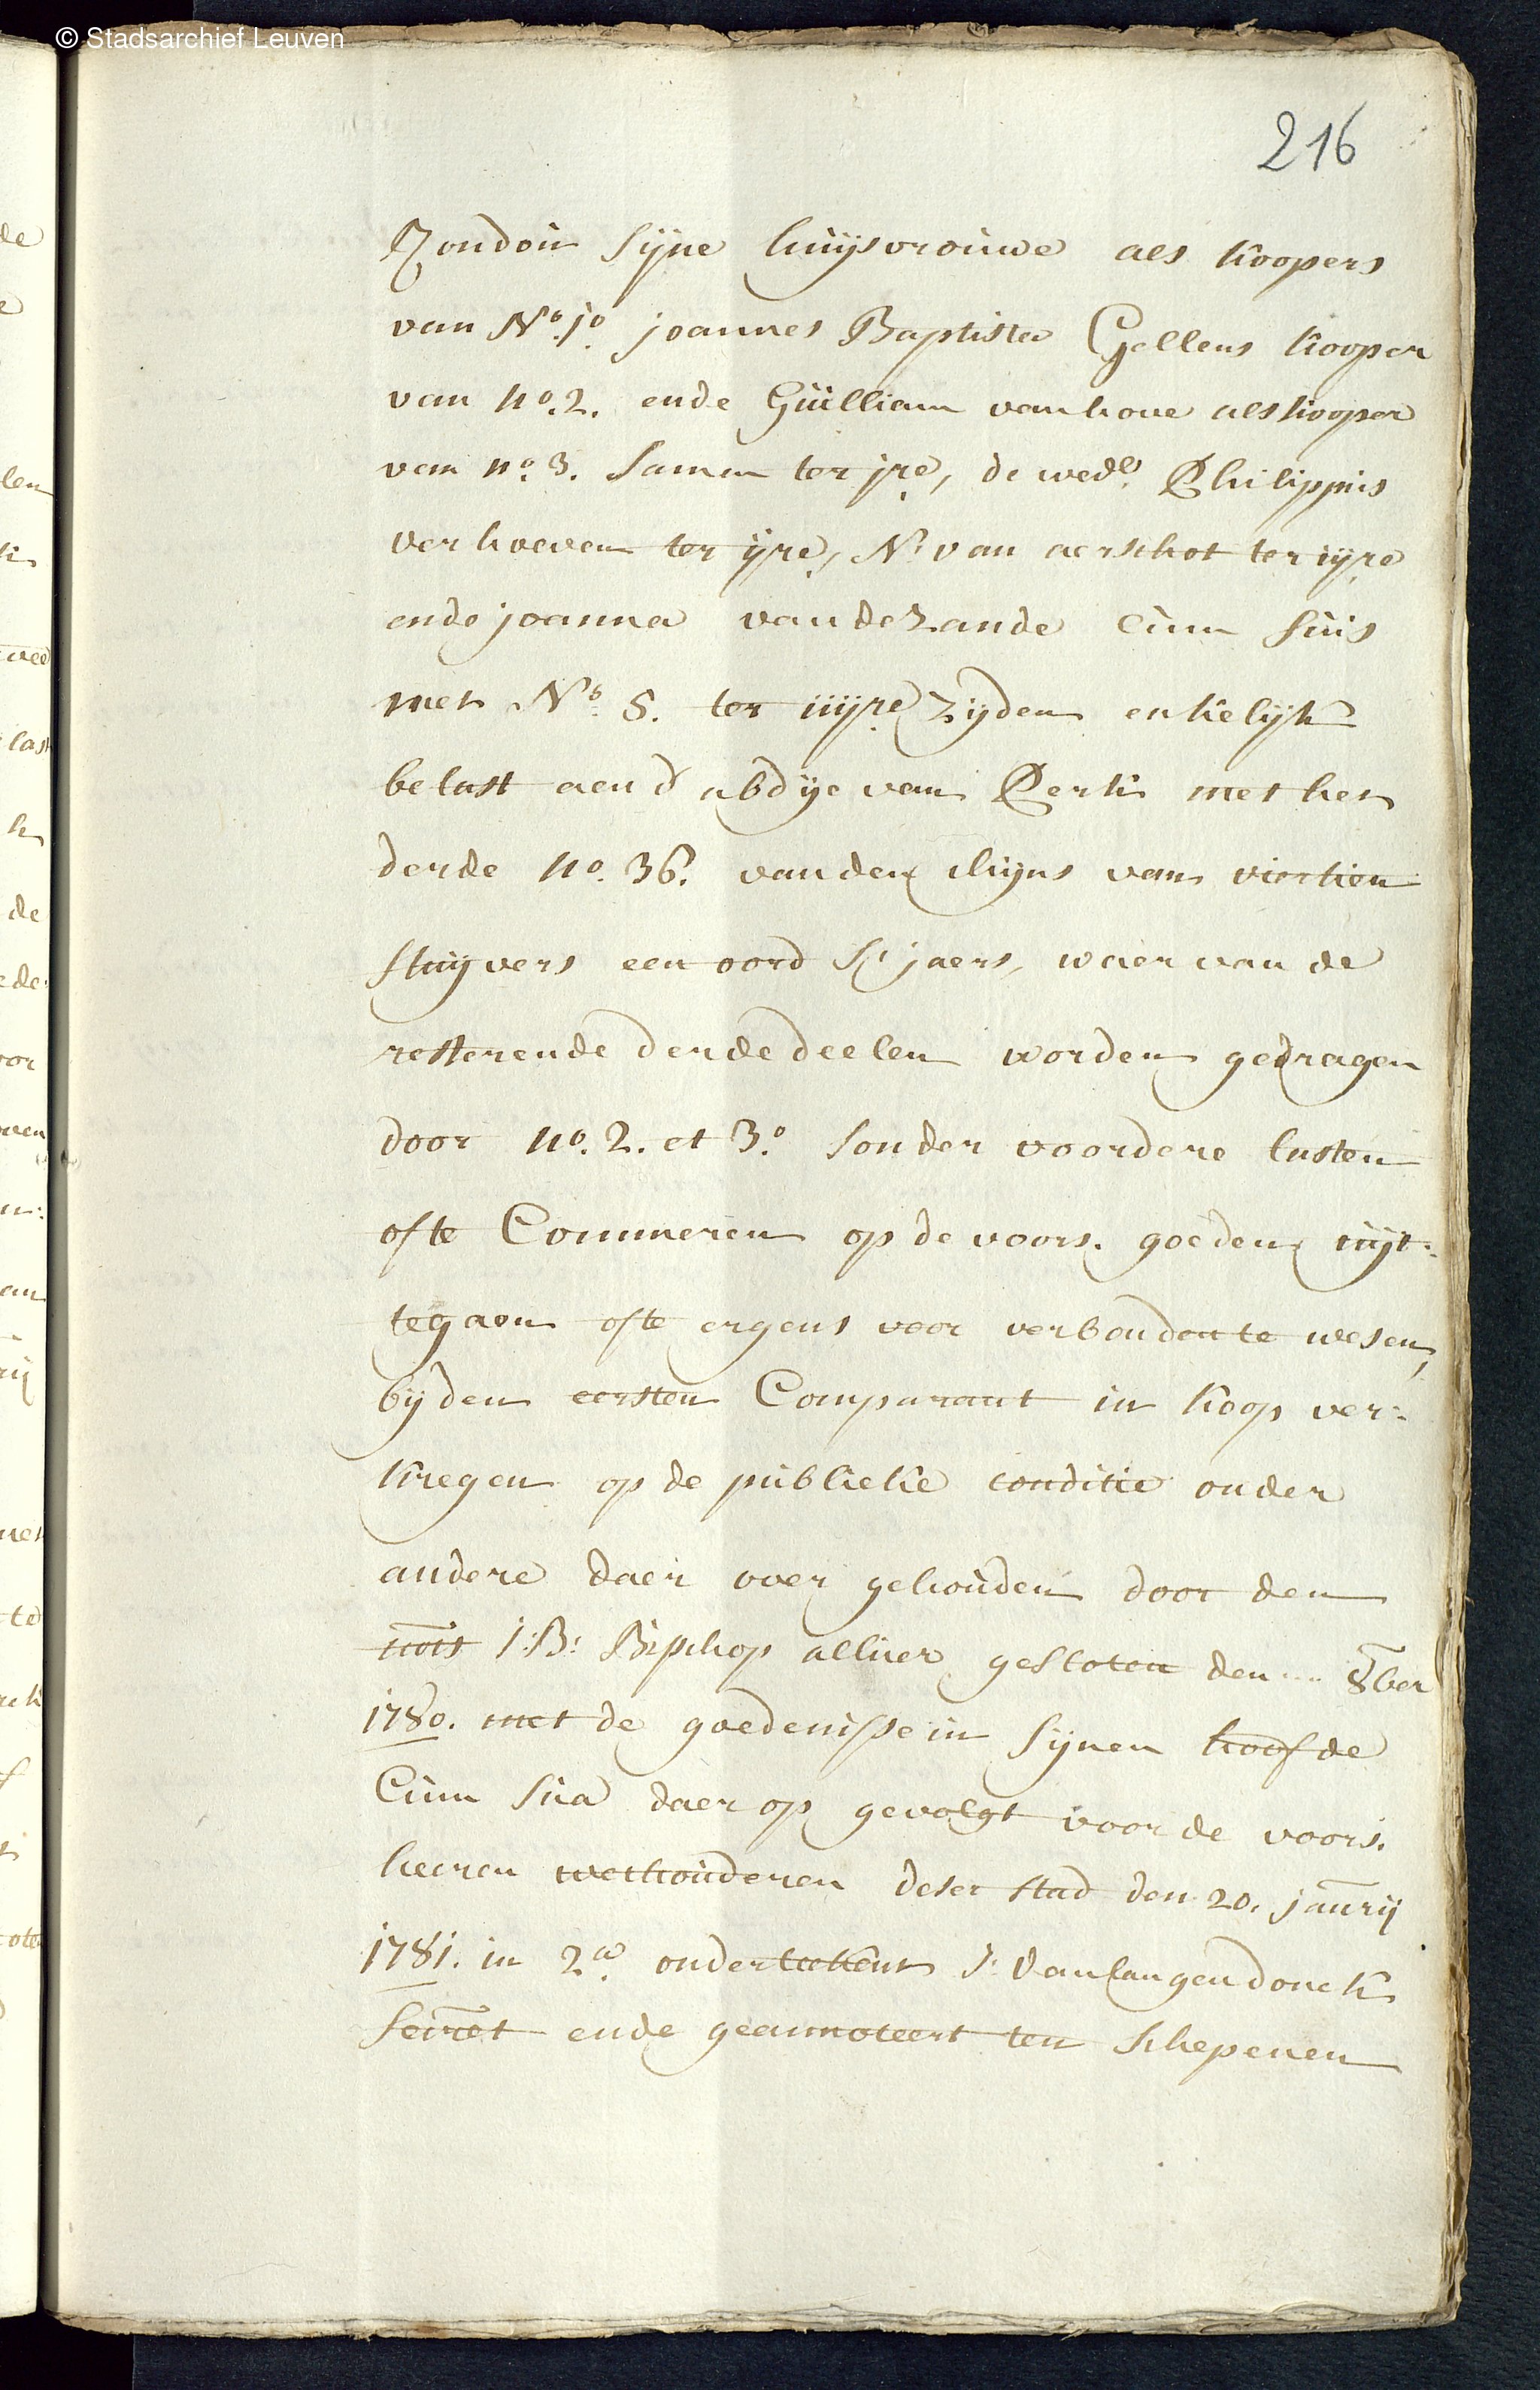 © Stadsarchief Leuven
216
Zondoir sijne huijsvrouwe als koopers
van No. 1o. joannes Baptista Gellens kooper
van no. 2. ende Guilliam vanhove als kooper
van no. 3. samen ter jre, de wede. Philippus
verhoeven ter ijre, N: van aerschot ter iijre
ende joanna vandezande cum suis
met No. 5. ter iiijre zijden enkelijk
belast aen d'abdije van Perk met het
derde no. 36. vanden chijns van viertien
stuijvers een oord sjaers, waer van de
resterende derdedeelen worden gedragen
door no. 2. et 3o. sonder voordere lasten
ofte Commeren op de voors. goeden uijt:
tegaen ofte ergens voor verbonden te wesen,
bij den eersten Comparant in koop ver:
kregen op de publieke conditie onder
andere daer over gehouden door den
nots J: B: Bisschop alhier gesloten den ... 8ber
1780. met de goedenisse in sijnen hoofde
Cum sua daer op gevolgt voor de voors.
heeren wethouderen deser stad den 20. janrij
1781. in 2a. onderteekent J: Vanlangendonck
secret ende geannoteert ten schepenen